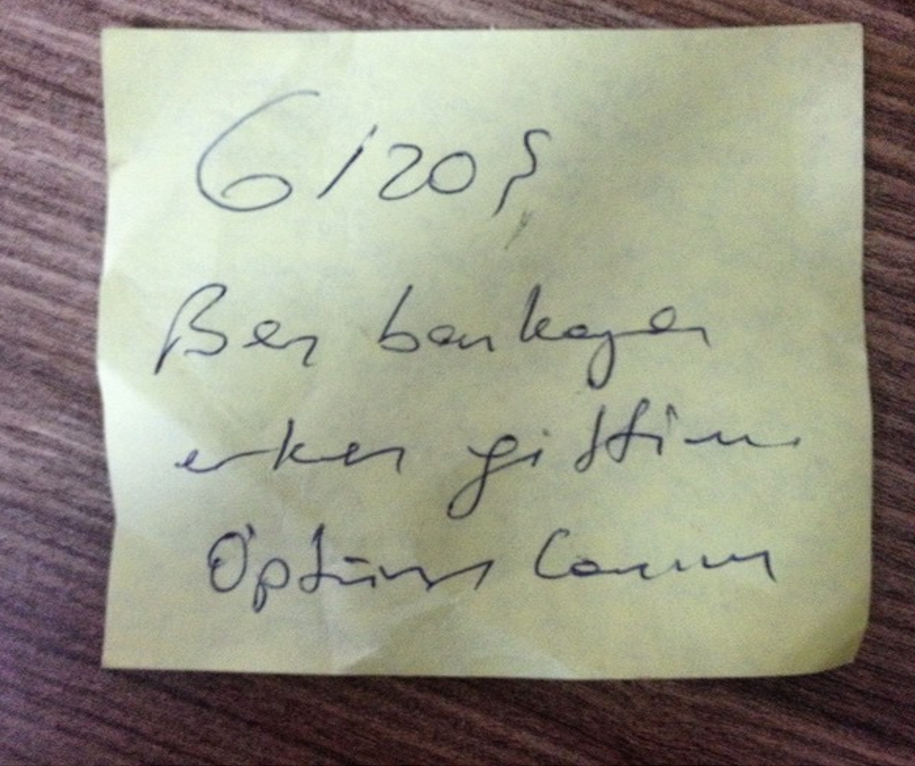 Ben bankaya
erken gittim
Öptüm Canım